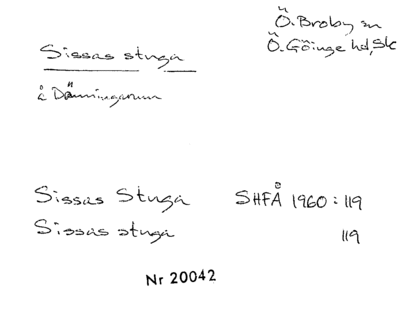 Ö. Broby sn
Sissas stuga
Ö. Göinge hd, Sk
å
Sissas Stuga SHFÅ 1960:119
Sissas stuga 119
Nr 20042